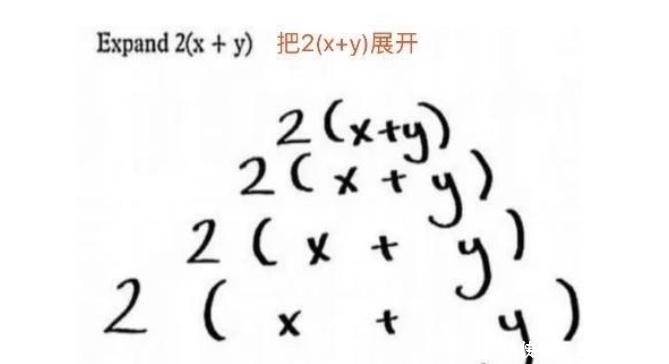 Expand 2(x + y) 把2(x+y)展开
2(x+y)
2(x + y)
2 ( x + y )
2 ( x + y )